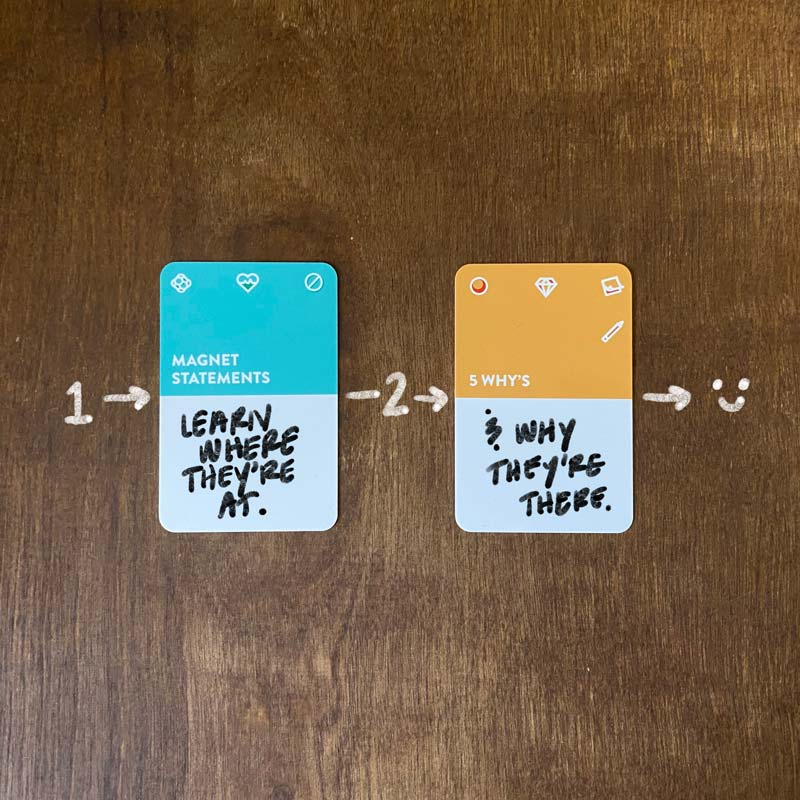 1
MAGNET
STATEMENTS
LEARN
WHERE
THEY'RE
AT.
2
5 WHY'S
& WHY
THEY'RE
THERE.